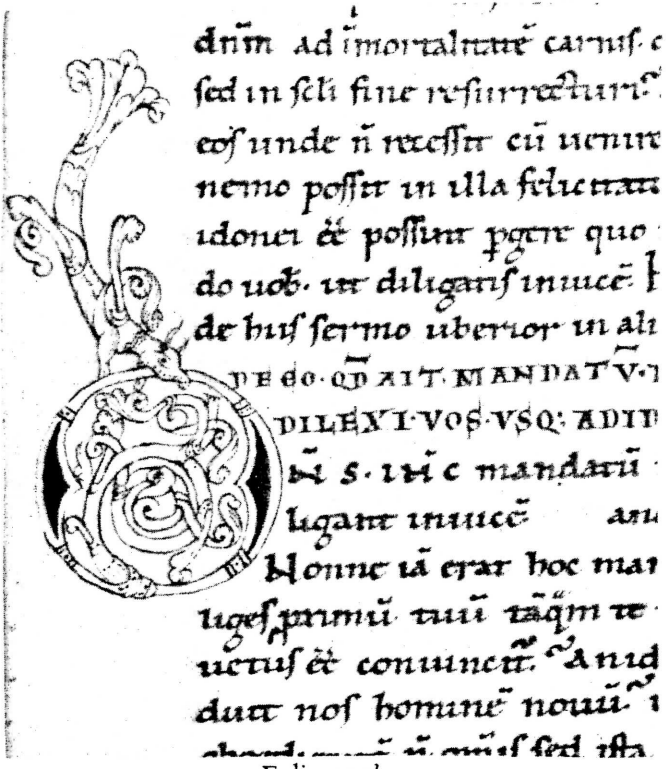 dnm̄ ad īmortalitatē carnis. c
sed in scłi fine resurrecturi.
eos unde n̄ recessit cū uenire
nemo possit in illa felicitate
idonei eē possunt ꝑgere quo
do uob. ut diligatis inuicē.
de his sermo uberior in ali
DE EO. QD̄ AIT. MANDATV̄.
DILEXI. VOS. VSQ: AD ID
N̄ S. IH̄C mandatū
ligant inuicē an
Nonne iā erat hoc man
liges primū tuū tāqm̄ te
uctus eē conuincit. An id
duit nos hominē nouū.
n̄ sed ista